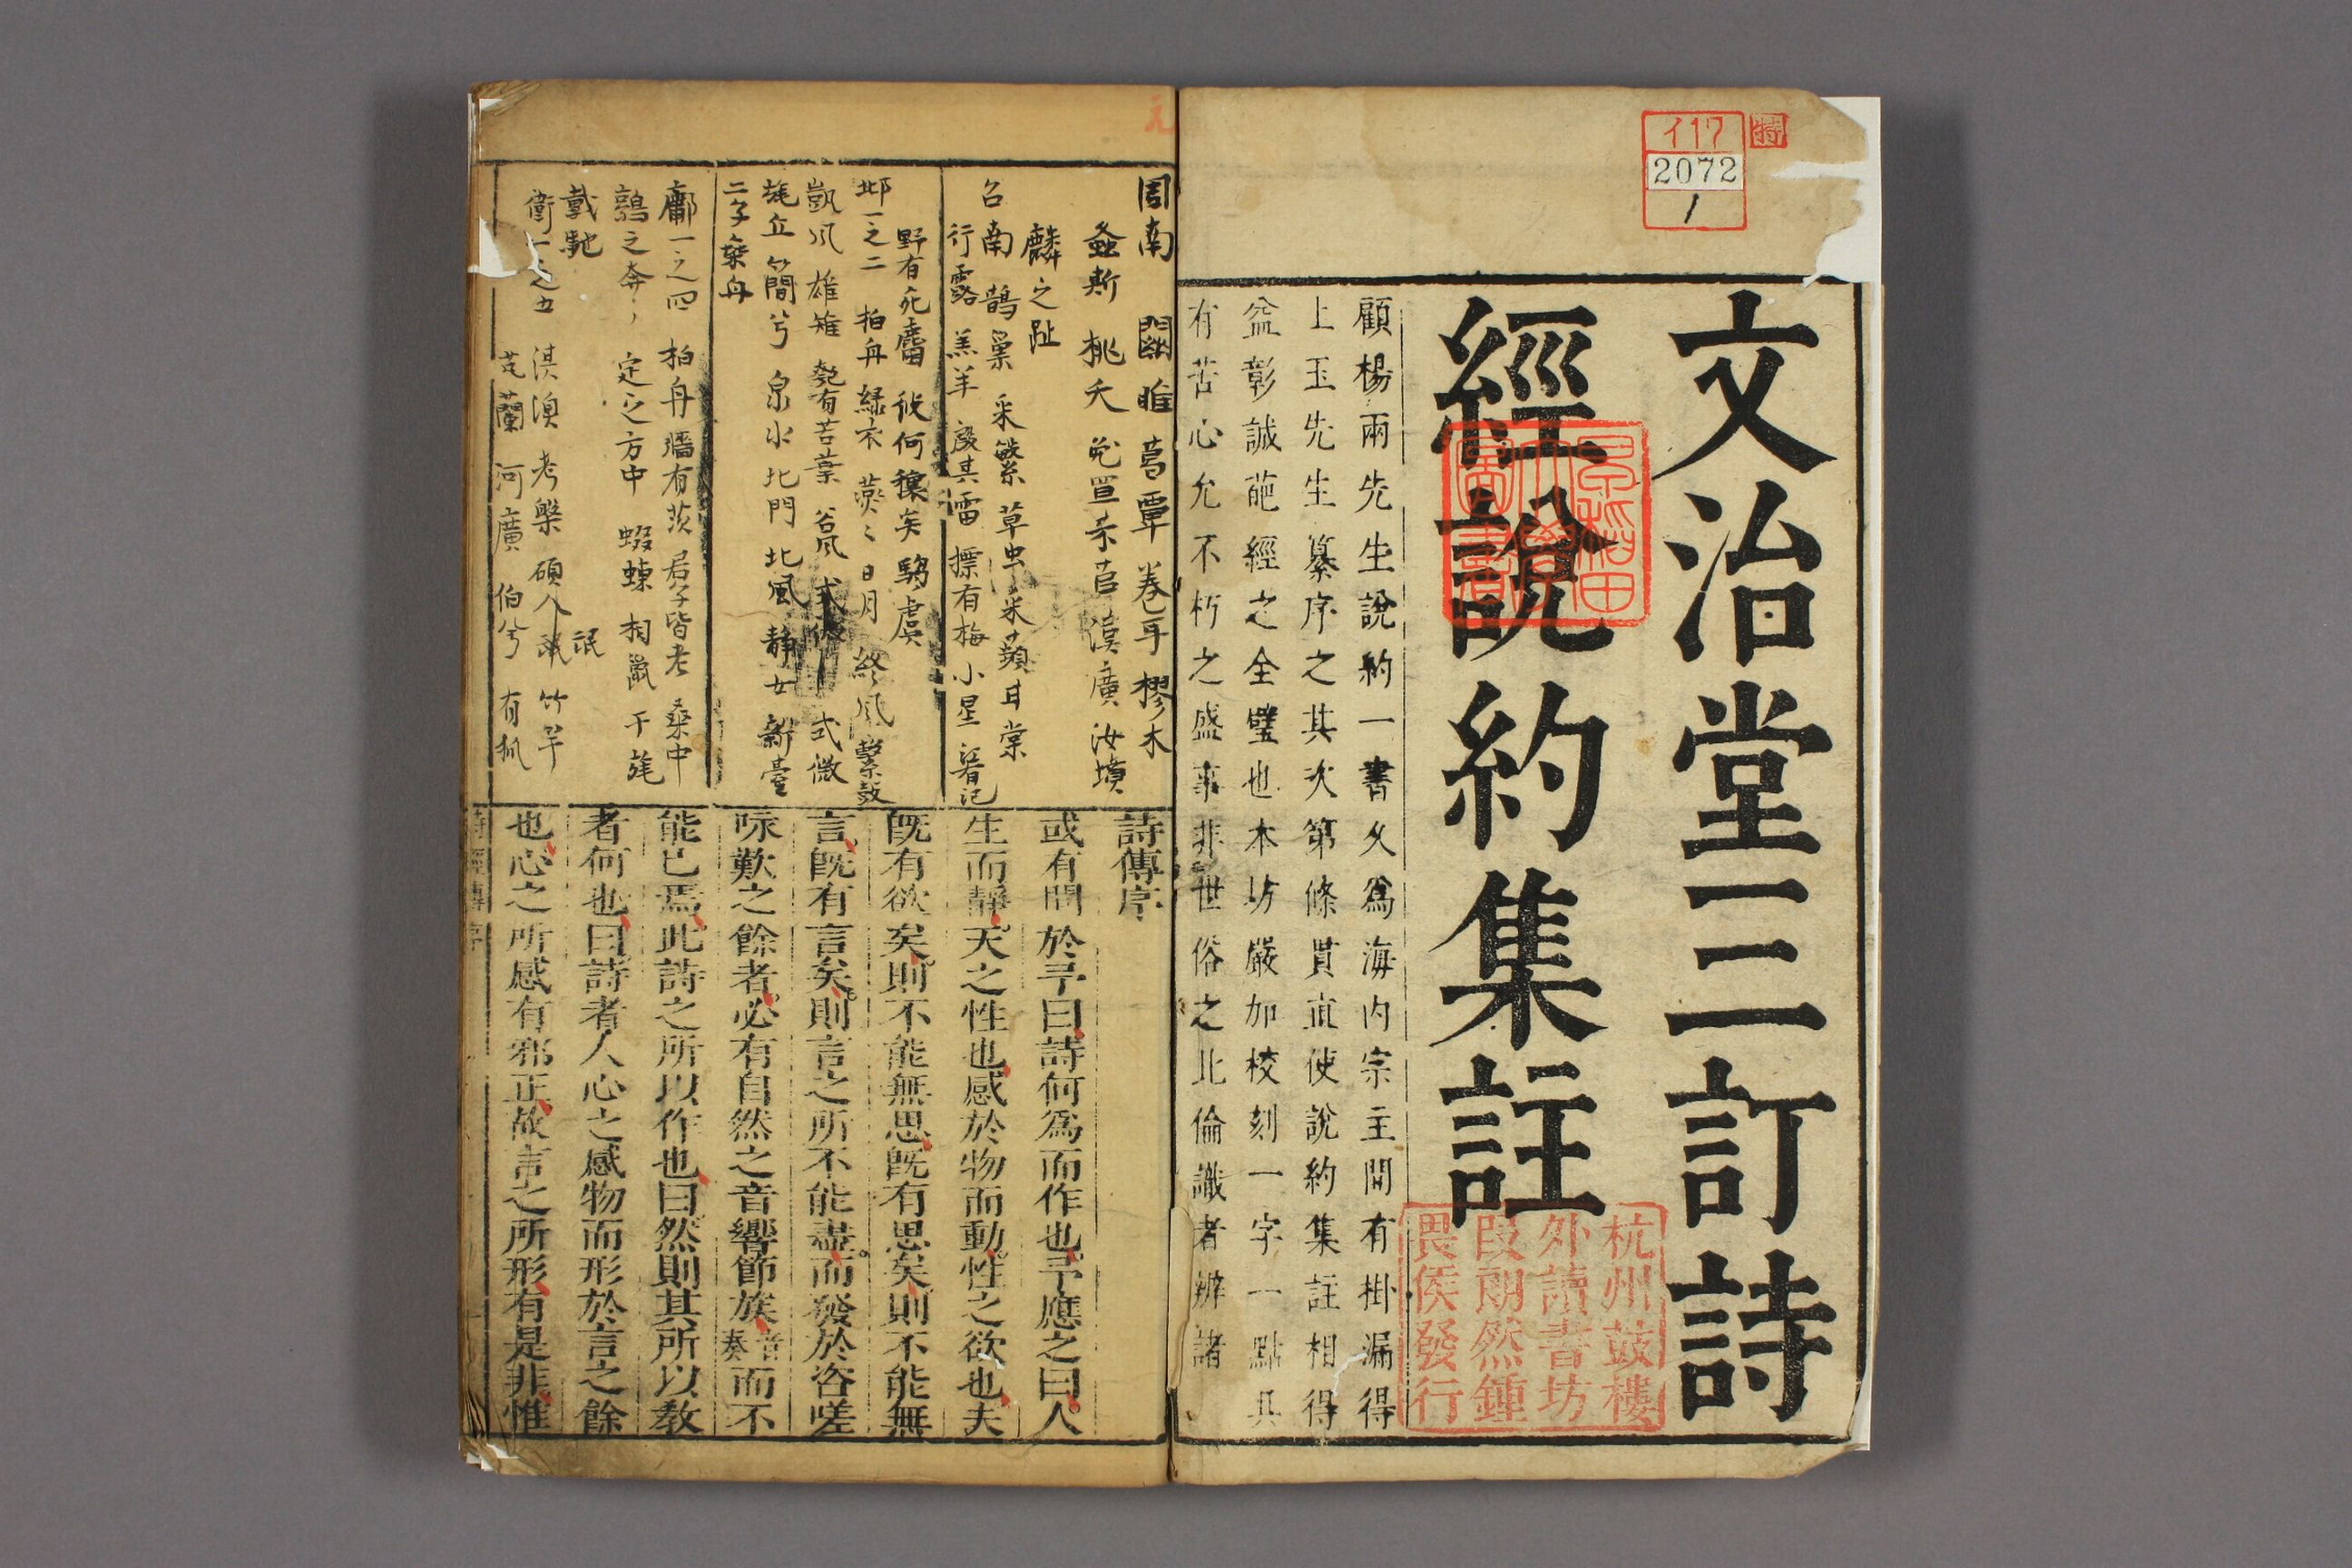 特
イ17
2072
1
文治堂三訂詩
經說約集註
顧楊兩先生說約一書久爲海內宗主間有掛漏得
上玉先生纂序之其次第條貫直使說約集註相得
益彰誠葩經之全璧也本坊嚴加校刻一字一點具
有苦心允不朽之盛事非世俗之比倫識者辨諸
早稻田
大學
圖書
杭州鼓樓
外讀書坊
段朗然鍾
畏侯發行
元
周南 關雎 葛覃 卷耳 樛木
螽斯 桃夭 兎罝 芣苢 漢廣 汝墳
麟之趾
召南 鵲巢 采蘩 草虫 采蘋 甘棠
行露 羔羊 殷其雷 摽有梅 小星
野有死麕 何穠矣 騶虞
邶一之二 柏舟 綠衣 燕〻 日月 終風 擊鼓
凱风 雄雉 匏有苦葉 谷风 式微 式微
旄丘 簡兮 泉水 北門 北風 静女 新臺
二子乗舟
鄘一之四 柏舟 墻有茨 君子皆老 桑中
鶉之奔〻 定之方中 蝃蝀 相鼠 干旄
載馳
衛一之五 淇澳 考槃 碩人 氓 竹竿
氓
芄蘭 河廣 伯兮 有狐
詩傳序
或有問於予曰詩何爲而作也予應之曰人
生而靜天之性也感於物而動性之欲也夫
旣有欲矣則不能無思旣有思矣則不能無
言旣有言矣則言之所不能盡而發於咨嗟
咏歎之餘者必有自然之音響節族音奏而不
能已焉此詩之所以作也曰然則其所以敎
者何也曰詩者人心之感物而形於言之餘
也心之所感有邪正故言之所形有是非惟
詩經傳序